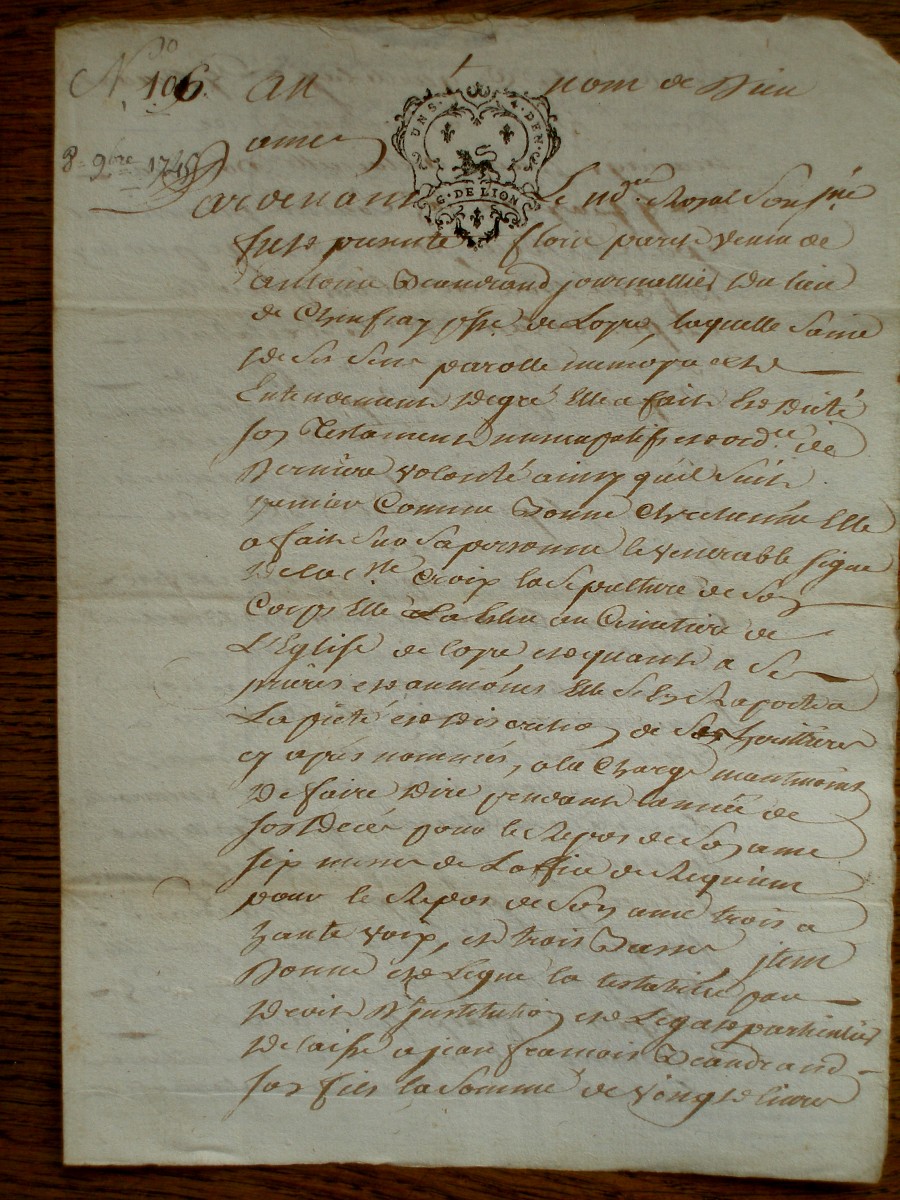 N.o 106. Au nom de Dieu
8e 9bre 1748 amen
UN S. 4. DEN.
G. DE LION
Pardevant Le no.re Royal Soussigné
fust presente florie veuve de
Antoine Beaudrand journallier du lieu
de psse. de Loyre, laquelle saine
de ses sens parolle memoyre et
Entendement de gré Elle a fait et dicté
son Testament nuncupatif et ord.ce de
derniere volonté ainsy qu'il suit
premier Comme bonne Chrestienne Elle
a fait sur sa personne le venerable signe
de la s.te Croix la sepulture de son
Corps Elle a Eslue au Cimetiere de
L'Eglise de loyre et quant a ses
prieres et aumônes Elle s'est Raportée a
La pieté et discretion de ses heritiers
cy aprés nommés, a la Charge neantmoins
De faire dire pendant l'année de
son décès pour le Repos de son ame
six messes de L'office de Requiem
pour le Repos de son ame trois a
haute voix, et trois basses jtem
Donne et Legue la testatrice par
droit d'Institution et Legat particulier
delaisse a jean francois Beaudrand
son fils la somme de vingt livres